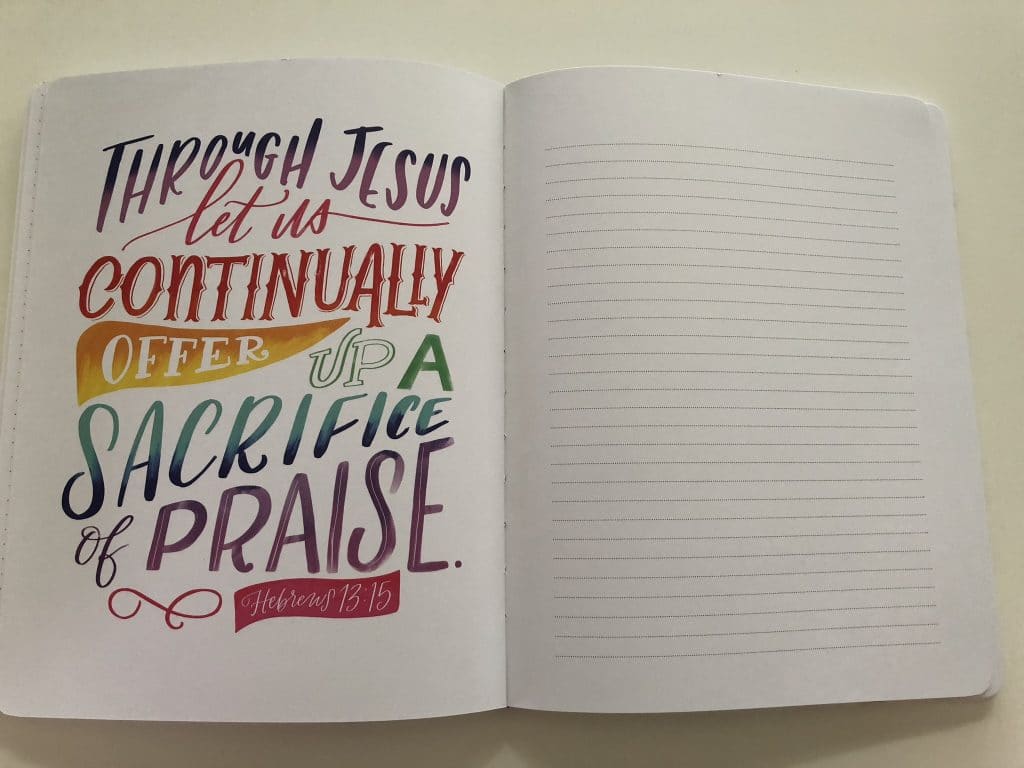 THROUGH JESUS
let us
CONTINUALLY
OFFER UP A
SACRIFICE
of PRAISE.
Hebrews 13:15